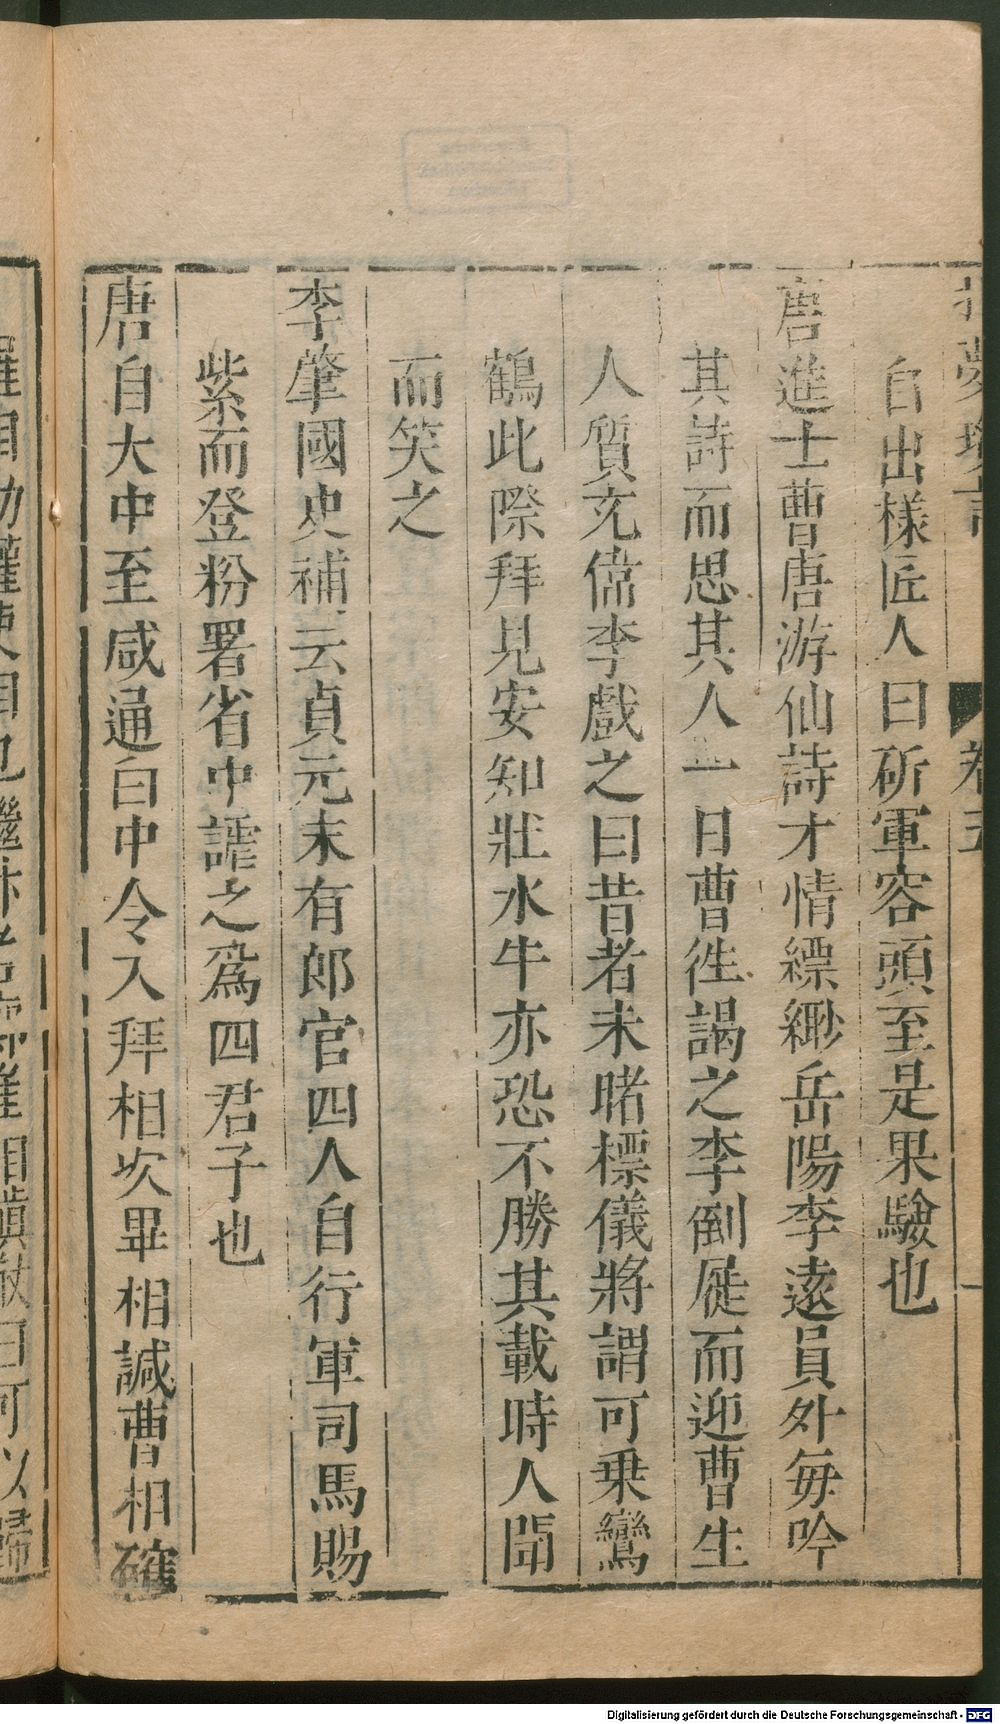 自出樣匠人曰斫軍容頭至是果驗也
唐進士曹唐游仙詩才情縹緲岳陽李遠員外每吟
其詩而思其人一日曹徃謁之李倒屣而迎曹生
人質充偉李戲之曰昔者未睹標儀將謂可乗鸞
鶴此際拜見安知壯水牛亦恐不勝其載時人聞
而笑之
李肇國史補云貞元末有郎官四人自行軍司馬賜
紫而登粉署省中謔之爲四君子也
唐自大中至咸通白中令入拜相次畢相諴曹相確
卷五
Digitalisierung gefördert durch die Deutsche Forschungsgemeinschaft - DFG